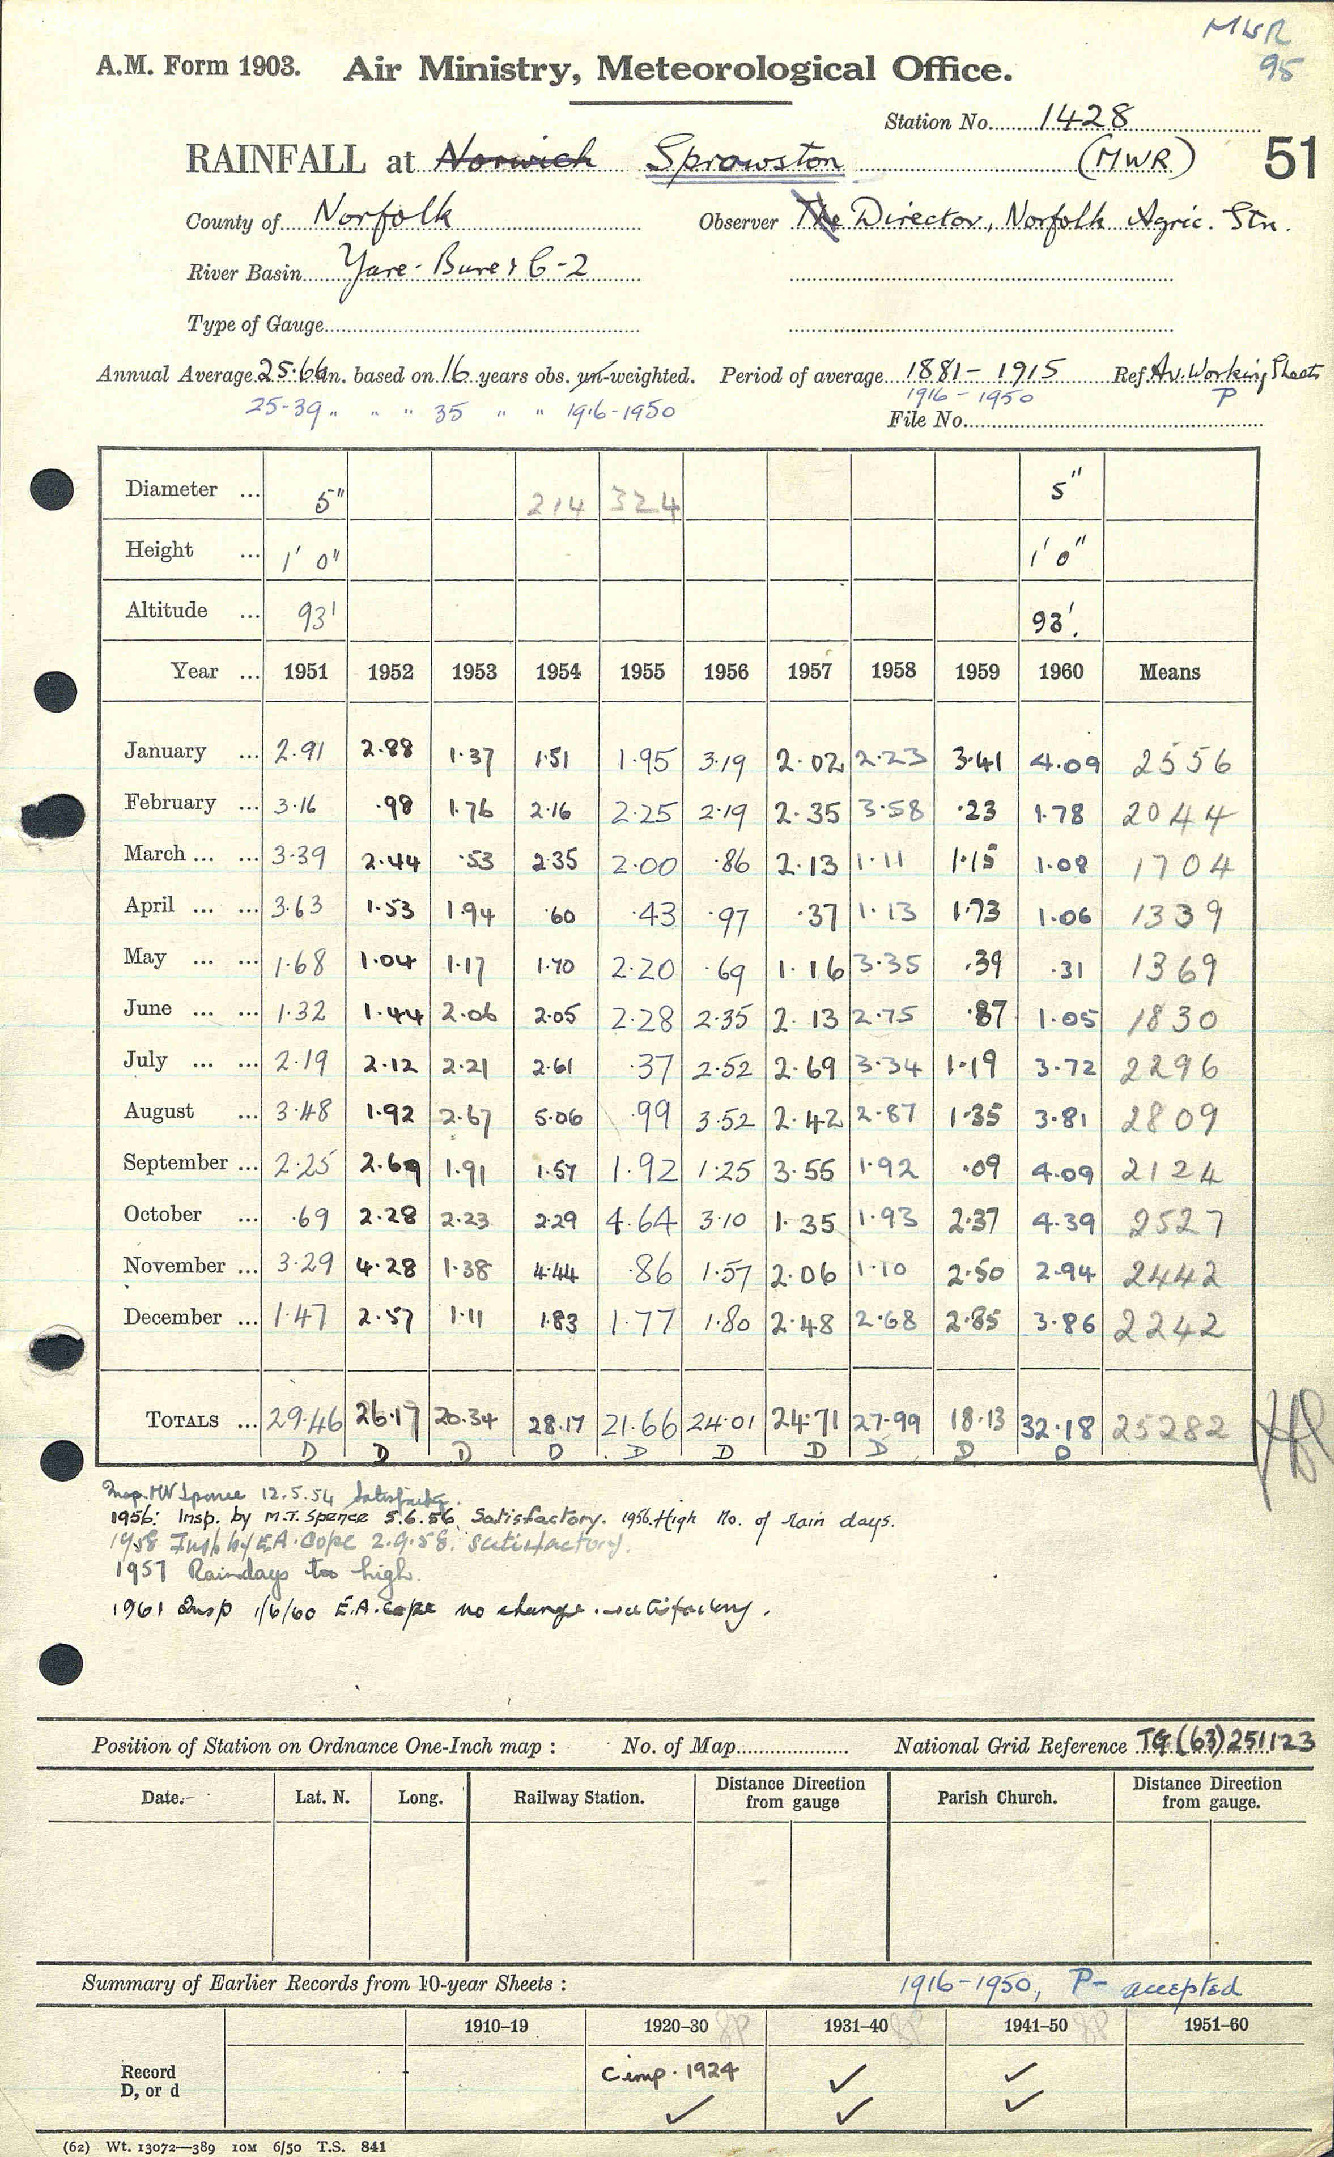 MWR
95
A.M. Form 1903. Air Ministry, Meteorological Office.
Station No. 1428
RAINFALL at Norwich Sprowston (MWR) 51
County of Norfolk Observer The Director, Norfolk Agric. Stn.
River Basin Yare-Bure & 6-2
Type of Gauge
Annual Average 25.66 in. based on 16 years obs. un-weighted. Period of average 1881-1915 Ref. Av. Working Sheets
25.39 " " " 35 " " 1916-1950 1916-1950 P
File No.
Diameter ... 5" 214 324 5"
Height ... 1' 0" 1' 0"
Altitude ... 93' 93'.
Year ... 1951 1952 1953 1954 1955 1956 1957 1958 1959 1960 Means
January ... 2.91 2.88 1.37 1.51 1.95 3.19 2.02 2.23 3.41 4.09 2556
February ... 3.16 .98 1.76 2.16 2.25 2.19 2.35 3.58 .23 1.78 2044
March ... ... 3.39 2.44 .53 2.35 2.00 .86 2.13 1.11 1.15 1.08 1704
April ... ... 3.63 1.53 1.94 .60 .43 .97 .37 1.13 1.73 1.06 1339
May ... ... 1.68 1.04 1.17 1.70 2.20 .69 1.16 3.35 .39 .31 1369
June ... ... 1.32 1.44 2.06 2.05 2.28 2.35 2.13 2.75 .87 1.05 1830
July ... ... 2.19 2.12 2.21 2.61 .37 2.52 2.69 3.34 1.19 3.72 2296
August ... 3.48 1.92 2.67 5.06 .99 3.52 2.42 2.87 1.35 3.81 2809
September ... 2.25 2.69 1.91 1.57 1.92 1.25 3.55 1.92 .09 4.09 2124
October ... .69 2.28 2.23 2.29 4.64 3.10 1.35 1.93 2.37 4.39 2527
November ... 3.29 4.28 1.38 4.44 .86 1.57 2.06 1.10 2.50 2.94 2442
December ... 1.47 2.57 1.11 1.83 1.77 1.80 2.48 2.68 2.85 3.86 2242
TOTALS ... 29.46 26.17 20.34 28.17 21.66 24.01 24.71 27.99 18.13 32.18 25282
D D D D D D D D D D
Insp. 12.5.54 Satisfactory.
1956: Insp. by M.T. Spence 5.6.56 Satisfactory. 1956 High No. of rain days.
1958 Insp by E.A. Cope 2.9.58. satisfactory.
1957 Raindays too high.
1961 Insp 1/6/60 E.A. Cope no change. satisfactory.
Position of Station on Ordnance One-Inch map : No. of Map National Grid Reference TG (63) 251123
Date. Lat. N. Long. Railway Station. Distance Direction from gauge Parish Church. Distance Direction from gauge.
Summary of Earlier Records from 10-year Sheets : 1916-1950, P- accepted
1910–19 1920–30 1931–40 1941–50 1951–60
Record Comp. 1924 ✓ ✓
D, or d ✓ ✓ ✓
(62) Wt. 13072—389 10M 6/50 T.S. 841